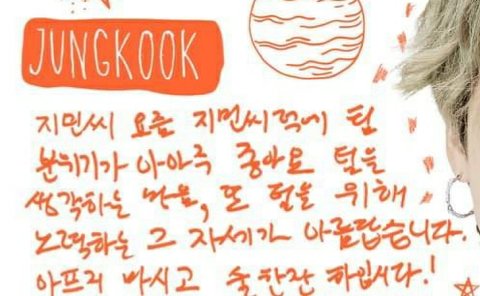 JUNGKOOK
지민씨 요즘 지민씨덕에 팀
분위기가 아아주 좋아요 팀을
생각하는 마음, 또 팀을 위해
노력하는 그 자세가 아름답습니다.
아프지 마시고 술한잔 하입시다!